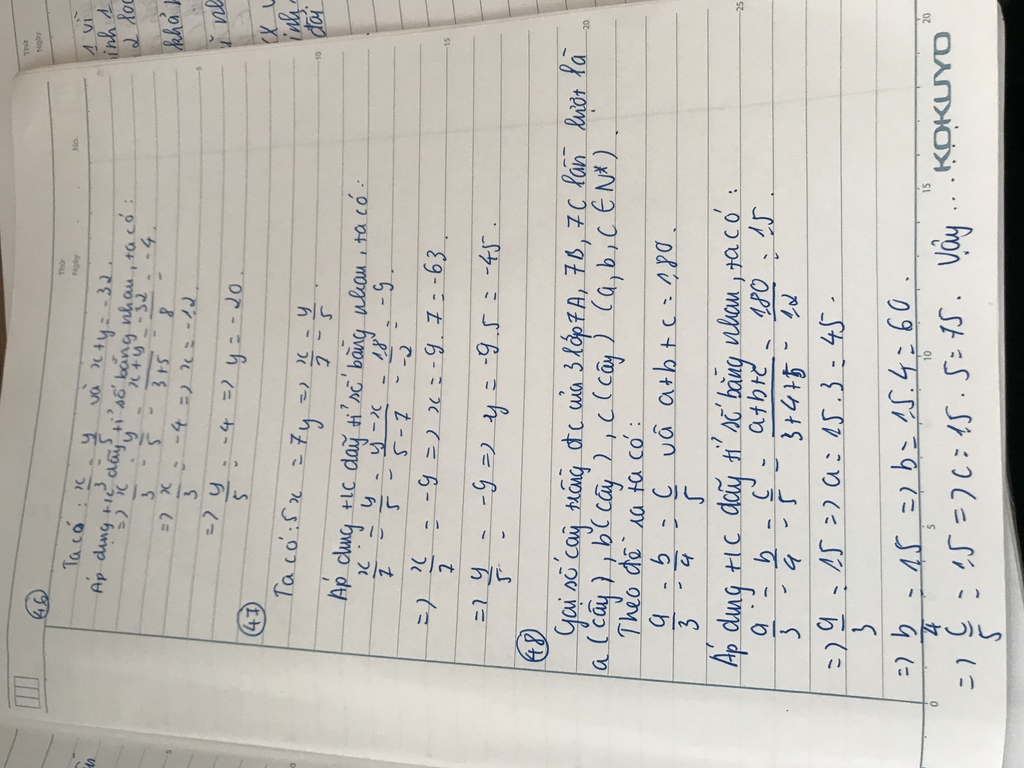 Thứ
Ngày
No.
(46)
Ta có: x/3 = y/5 và x+y = -32
Áp dụng t/c dãy tỉ số bằng nhau, ta có:
=> x/3 = y/5 = x+y/3+5 = -32/8 = -4.
=> x/3 = -4 => x = -12
=> y/5 = -4 => y = -20
(47)
Ta có: 5x = 7y => x/7 = y/5
Áp dụng t/c dãy tỉ số bằng nhau, ta có:
x/7 = y/5 = y-x/5-7 = 18/-2 = -9.
=> x/7 = -9 => x = -9.7 = -63
=> y/5 = -9 => y = -9.5 = -45.
(48)
Gọi số cây trồng đc của 3 lớp 7A, 7B, 7C lần lượt là
a (cây), b (cây), c (cây) (a, b, c ∈ N*)
Theo đề ra ta có:
a/3 = b/4 = c/5 và a+b+c = 180.
Áp dụng t/c dãy tỉ số bằng nhau, ta có:
a/3 = b/4 = c/5 = a+b+c/3+4+5 = 180/12 = 15
=> a/3 = 15 => a = 15.3 = 45.
=> b/4 = 15 => b = 15.4 = 60.
=> c/5 = 15 => c = 15.5 = 75. Vậy ...
0 5 10 15 20
KOKUYO